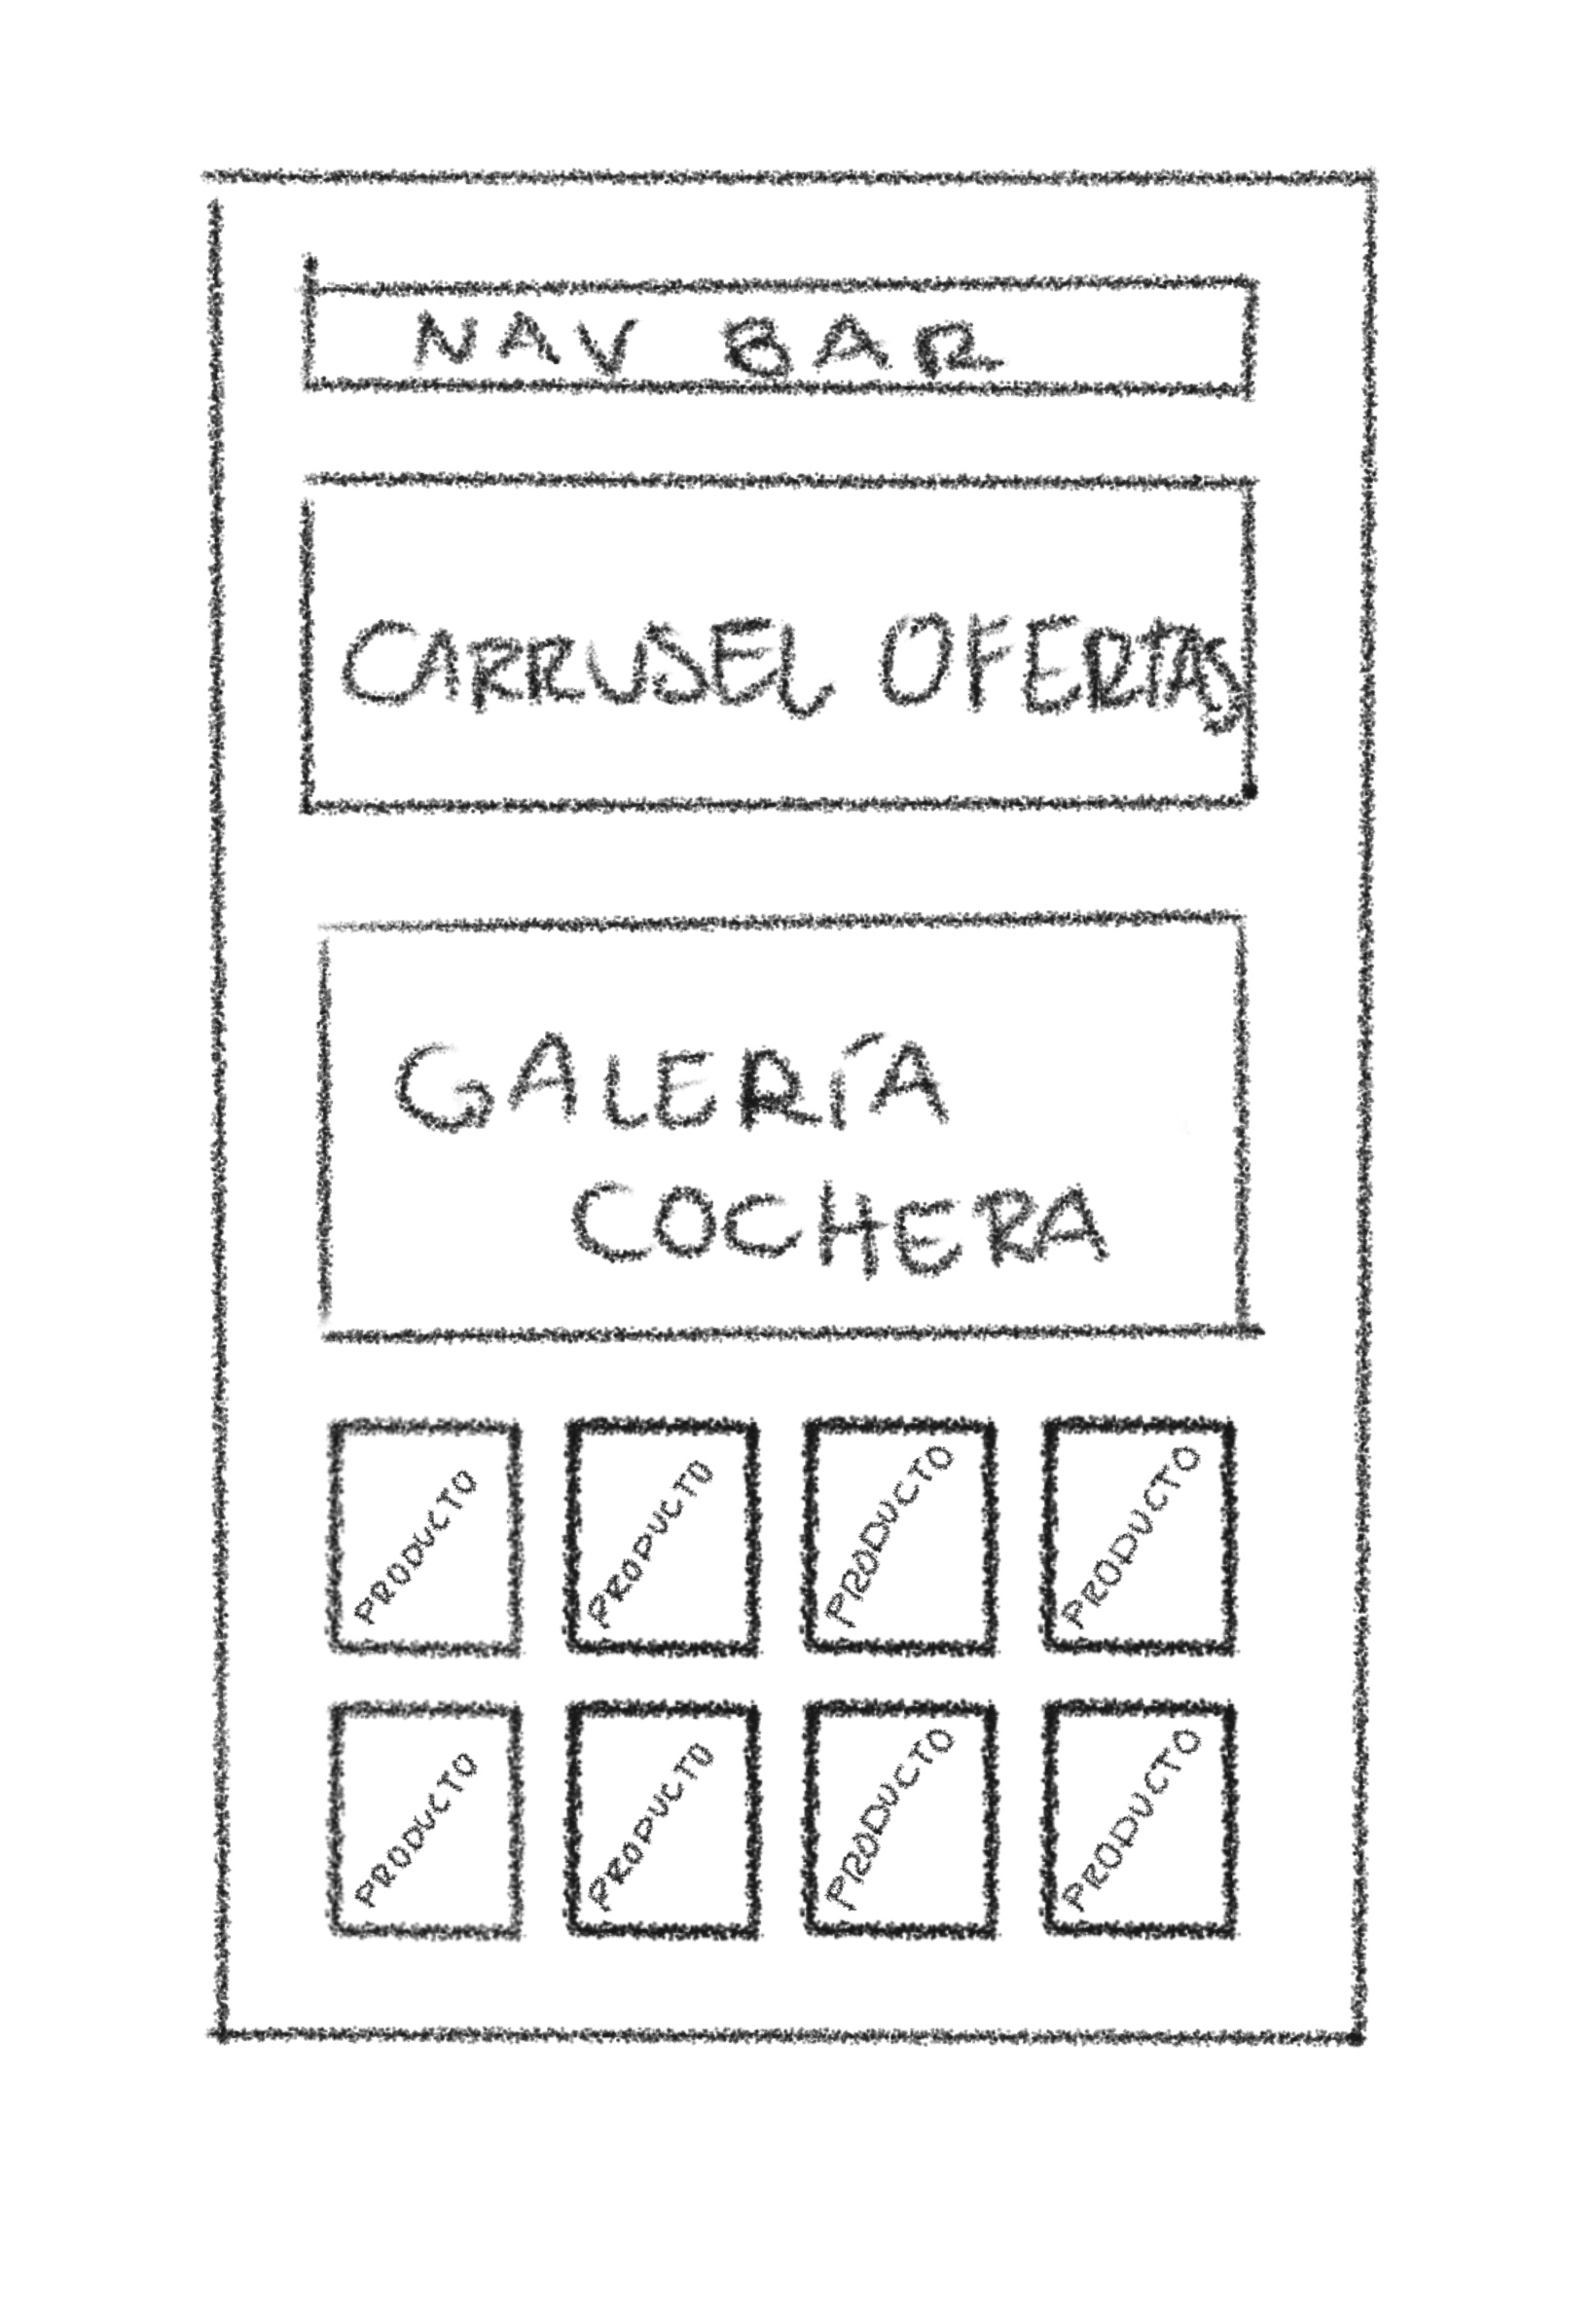 NAV BAR
CARRUSEL OFERTAS
GALERÍA
COCHERA
PRODUCTO
PRODUCTO
PRODUCTO
PRODUCTO
PRODUCTO
PRODUCTO
PRODUCTO
PRODUCTO